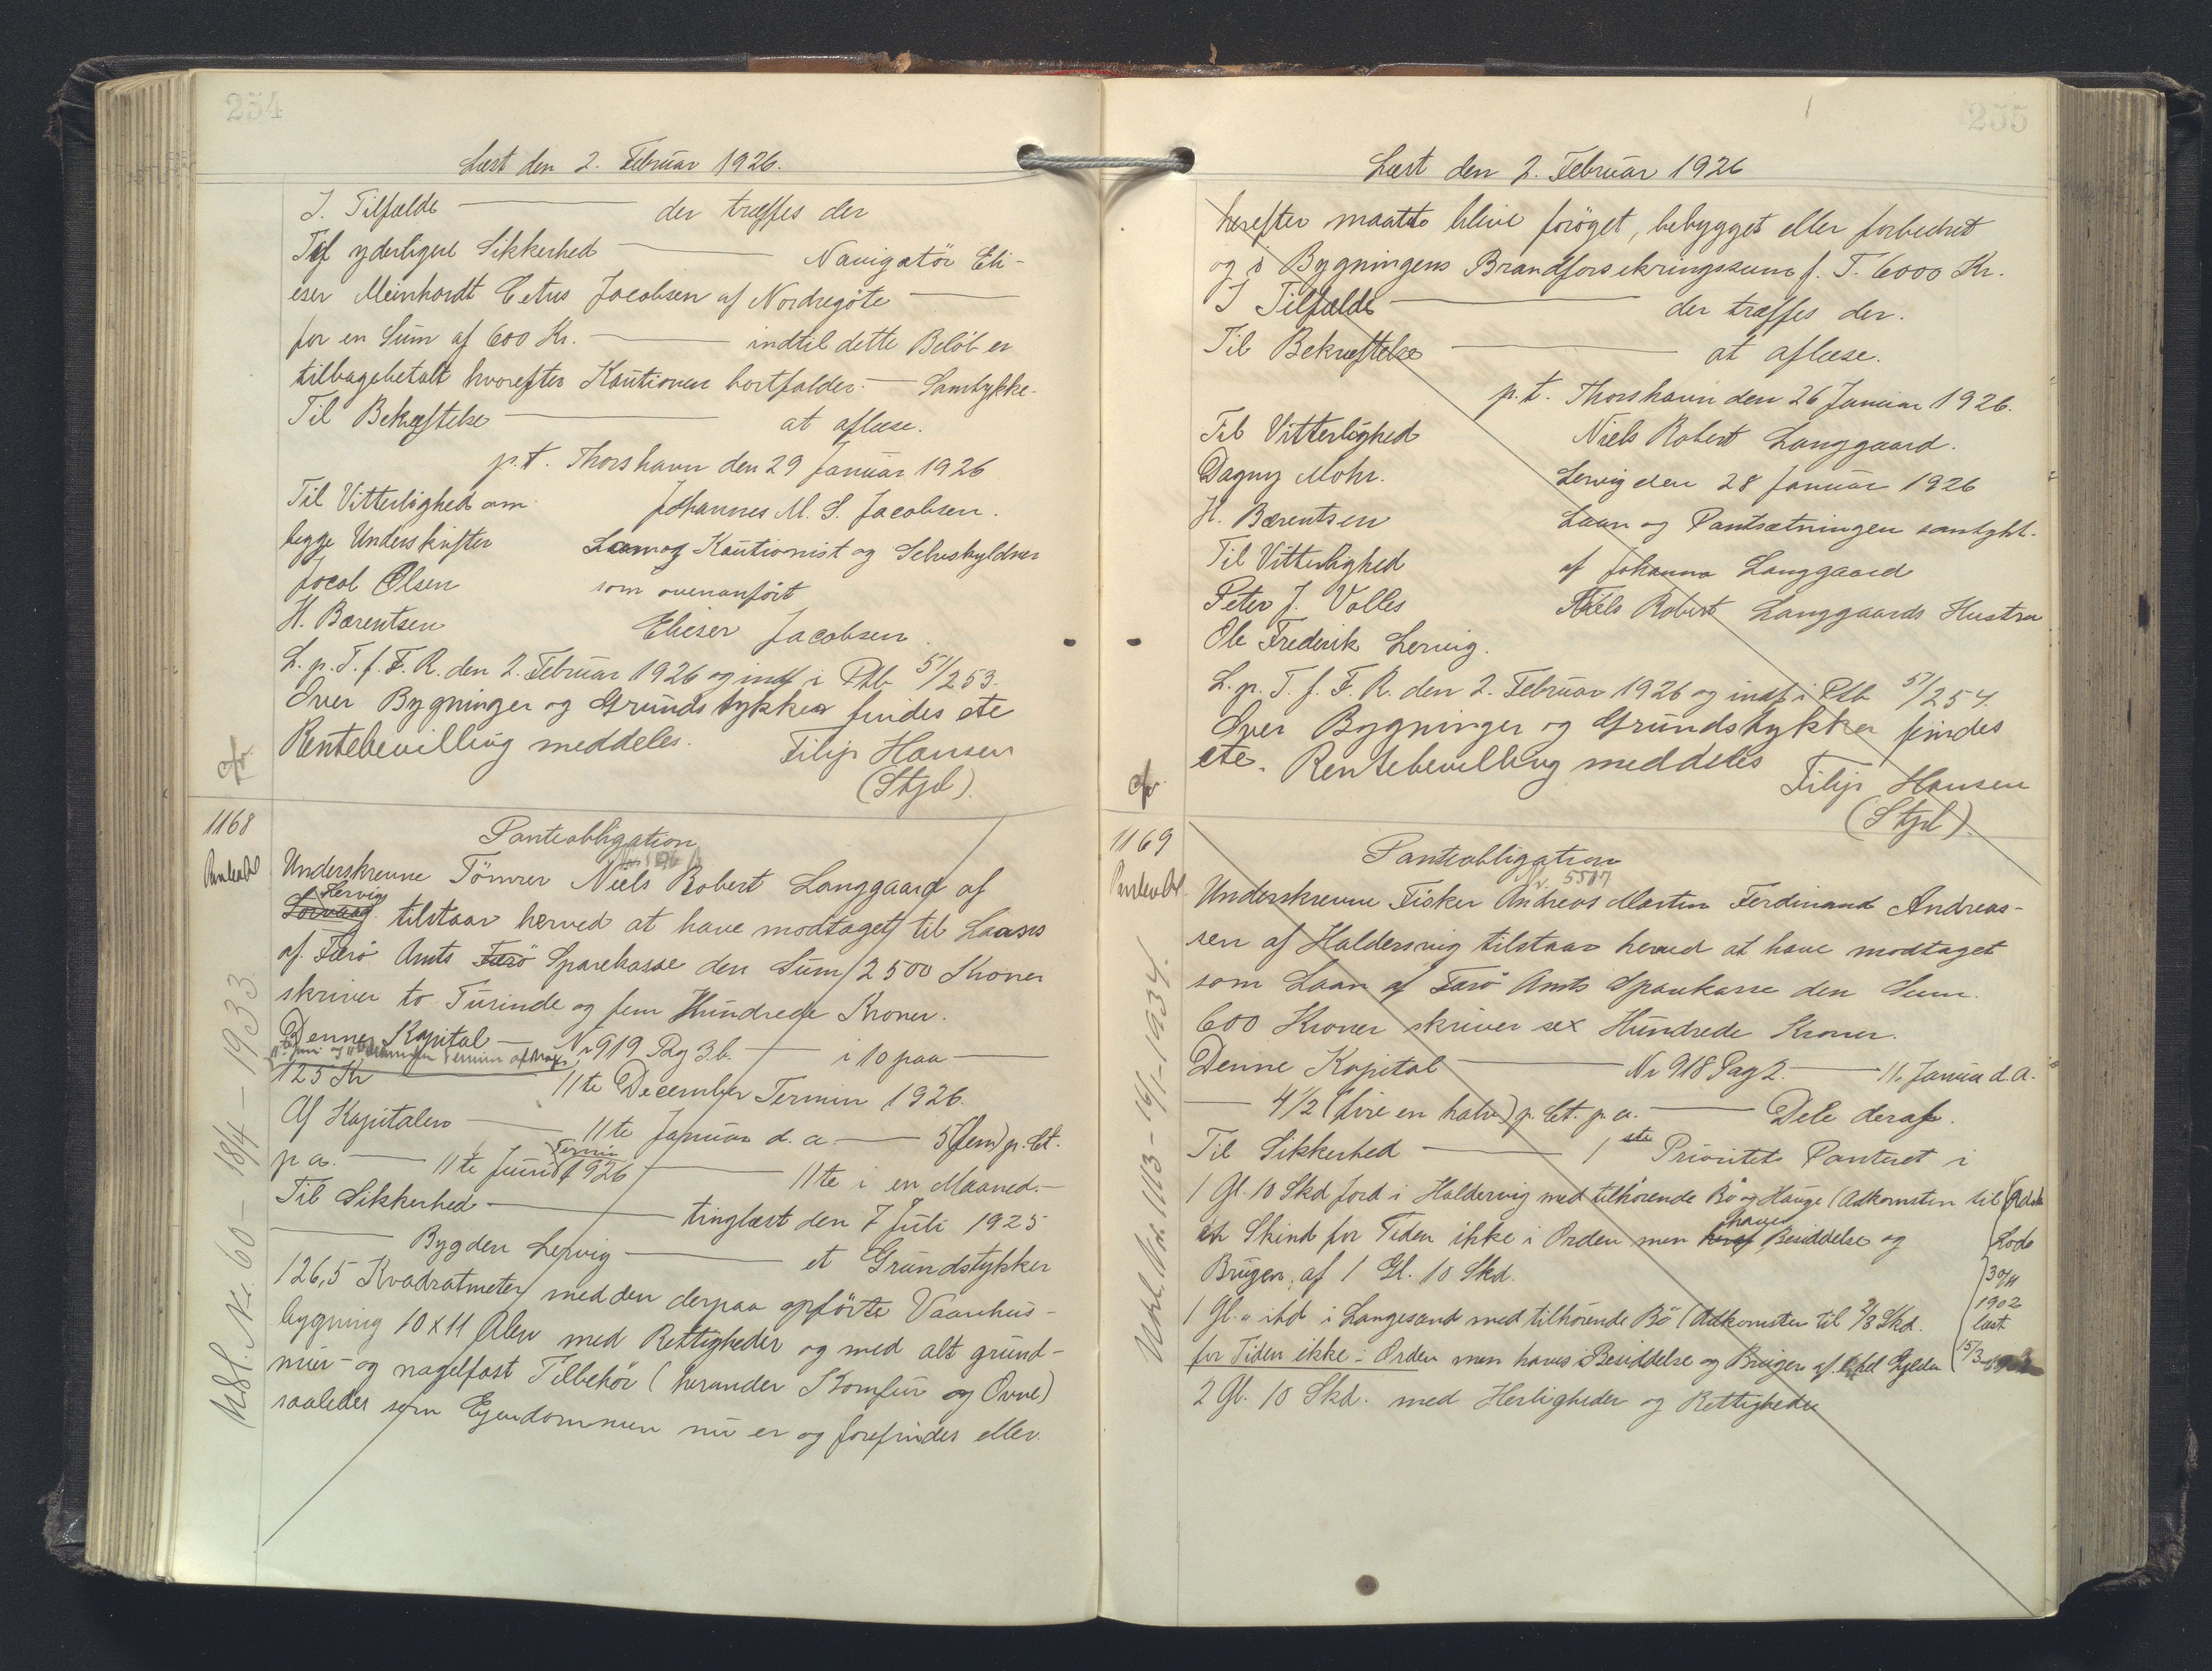 254
Læst den 2. Februar 1926.
I. Tilfælde — der træffes der
Til yderligere Sikkerhed — Navigatör Eli-
eser Meinhardt Cetus Jacobsen af Nordregöte —
for en Sum af 600 Kr. — indtil dette Beløb er
tilbagebetalt hvorefter Kautionen bortfalder. — Samtykke.
Til Bekræftelse — at aflæse.
p.t. Thorshavn den 29 Januar 1926
Til Vitterlighed om Johannes M. S. Jacobsen.
begge Underskrifter Som Kautionist og Selvskyldner
Jocob Olsen som ovenanført
H. Bærentsen Elieser Jacobsen.
L. p. T. f. F. R. den 2. Februar 1926 og indf i Ptb 51/253.
Over Bygninger og Grundstykker findes etc
Rentebevilling meddeles. Filip Hansen
cfr. (Stgd).
1168 Panteobligation
Underskrevne Tömrer Niels Robert Langgaard af
Panteobl Lervig
Sorvaag tilstaar herved at have modtaget til Laans
af Færø Amts Færö Sparekasse den Sum 2500 Kroner
skriver to Tusinde og fem Hundrede Kroner.
Denne Kapital — Nr 919 Pag 3.b. — i 10 paa —
11te Juni og 11te December Termin
125 Kr 11te December Termin 1926.
Af Kapitalen — 11te Januar d. a. — 5 (fem) p. Ct.
p a. — 11te Juni Termin 1926 — 11te i en Maaned. —
Til Sikkerhed — tinglæst den 7 Juli 1925
— Bygden Lervig — et Grundstykker
126,5 Kvadratmeter med den derpaa opførte Vaanhus-
bygning 10 x 11 Alen med Rettigheder og med alt grund-
mur- og nagelfast Tilbehör (herunder Komfur og Ovne)
saaledes som Ejendommen nu er og forefindes eller
Udsl. Nr. 60 - 18/4 - 1933.
255
Læst den 2. Februar 1926
herefter maatte blive forøget, bebygget eller forbedret
og i Bygningens Brandforsikringssum f. T. 6000 Kr.
I Tilfælde — der træffes der.
Til Bekræftelse — at aflæse.
p.t. Thorshavn den 26 Januar 1926.
Til Vitterlighed Niels Robert Langgaard.
Dagny Mohr. Lervig den 28 Januar 1926
H. Bærentsen Laan og Pantsætningen samtykt.
Til Vitterlighed af Johanna Langgaard
Peter J. Volles Niels Robert Langgaards Hustru
Ole Frederik Lervig.
L. p. T. f. F. R. den 2. Februar 1926 og indf i Ptb 51/254.
Over Bygninger og Grundstykker findes
etc. Rentebevilling meddeles
cfr. Filip Hansen
(Stgd).
1169 Panteobligation
Nr. 5507
Panteobl. Underskrevne Fisker Andreas Martin Ferdinand Andreas-
sen af Haldersvig tilstaar herved at have modtaget
som Laan af Færö Amts Sparekasse den Sum
600 Kroner skriver sex Hundrede Kroner.
Denne Kapital — Nr 918 Pag 2. — 11. Januar d. a.
— 4 1/2 (fire en halv) p. Ct. p. a. — Dele deraf.
Til Sikkerhed — 1ste Prioritets Panteret i
1 Gl. 10 Skd Jord i Haldersvig med tilhørende Bö og Hauge (Adkomsten til
et Skind for Tiden ikke i Orden men haves Besiddelse og
Brugen af 1 Gl. 10 Skd.
1 Gl. " ibd i Langesand med tilhörende Bö (Adkomsten til 2/3 Skd.
for Tiden ikke i Orden men haves i Besiddelse og Brugen af hel Gylden
Skode
30/11
1902
læst
15/3
2 Gl. 10 Skd. med Herligheder og Rettigheder
Udsl. Nr. 1113 - 16/1 - 1934.